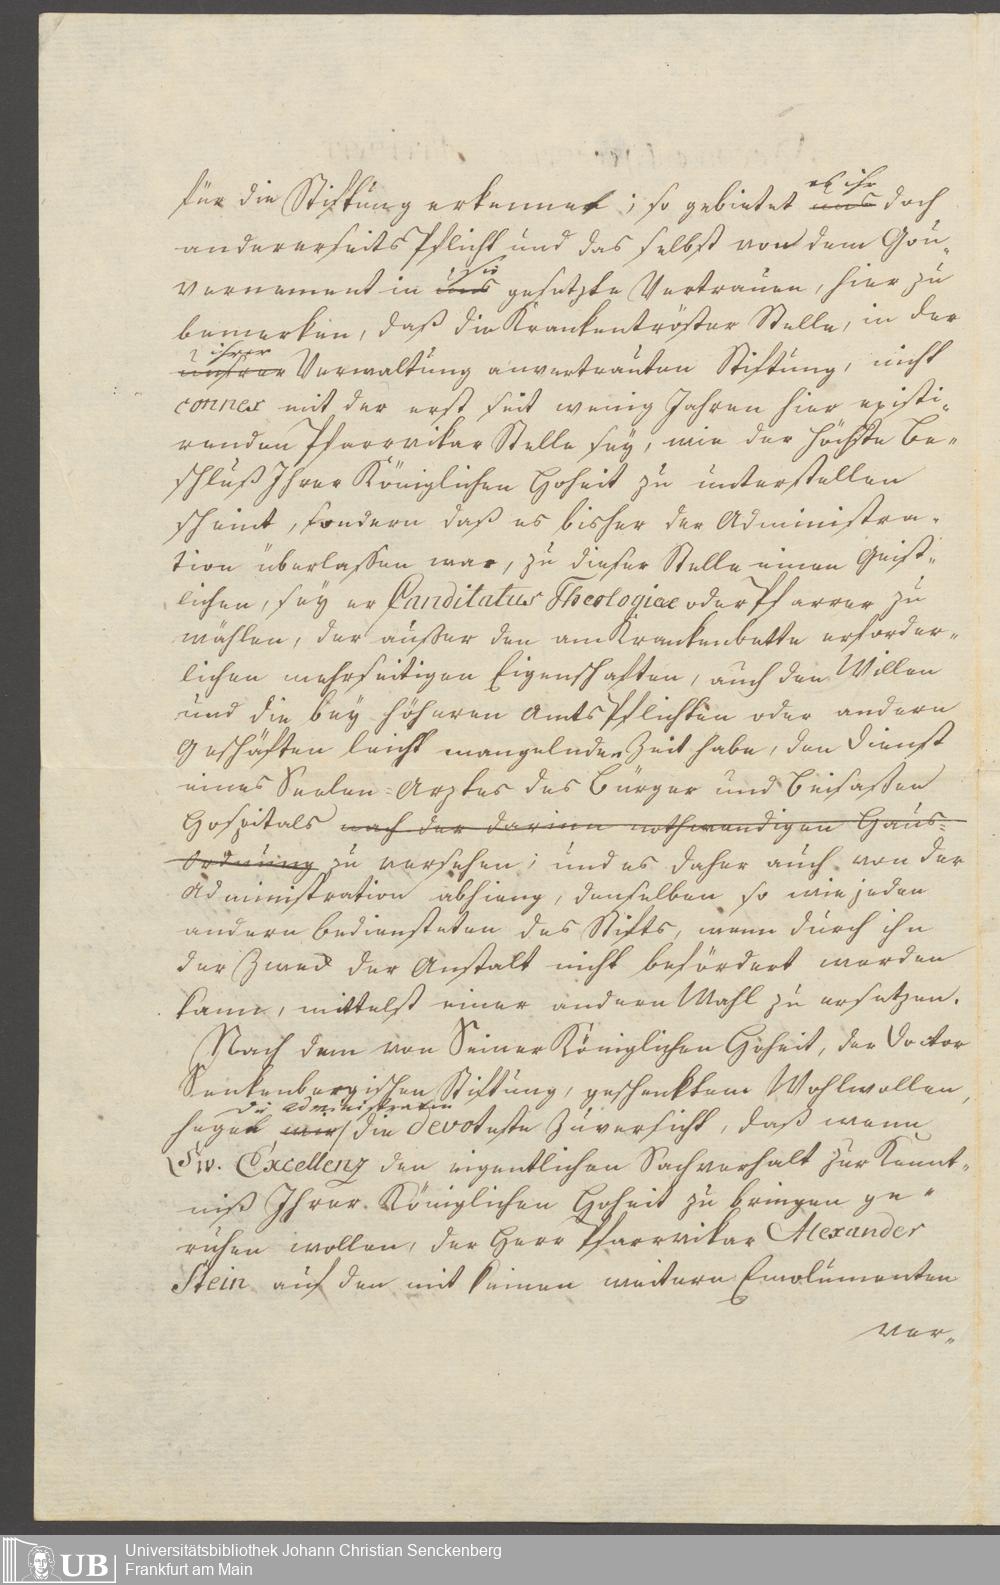 für die Stiftung erkennet; so gebietet uns es ihr doch
andererseits Pflicht und das selbst von dem Gou-
vernement in uns sie gesetzte Vertrauen, hier zu
bemerken, daß die Krankentröster Stelle, in der
unsrer ihrer Verwaltung anvertrauten Stiftung, nicht
connex mit der erst seit wenig Jahren hier existi-
renden Pfarrvikar Stelle sey, wie der höchste Be-
schluß Ihrer Königlichen Hoheit zu unterstellen
scheint, sondern daß es bisher der Administra-
tion überlassen war, zu dieser Stelle einen Geist-
lichen, sey er Canditatus Theologiae oder Pfarrer zu
wählen, der ausser den am Krankenbette erforder-
lichen mehrseitigen Eigenschaften, auch den Willen
und die bey höheren Amts Pflichten oder andern
Geschäften leicht mangelnde Zeit habe, den Dienst
eines Seelen-Arztes des Bürger und Beisassen
Hospitals nach der darinn nothwendigen Haus-
ordnung zu versehen; und es daher auch von der
Administration abhieng, denselben so wie jeden
andern Bediensteten des Stifts, wenn durch ihn
der Zweck der Anstalt nicht befördert werden
kann, mittelst einer andern Wahl zu ersetzen.
Nach dem von Seiner Königlichen Hoheit, der Doctor
Senkenbergischen Stiftung, geschenktem Wohlwollen,
hegen wir die Administration die devoteste Zuversicht, daß wenn
Ew. Excellenz den eigentlichen Sachverhalt zur Kennt-
niß Ihrer Königlichen Hoheit zu bringen ge-
ruhen wollen, der Herr Pfarrvikar Alexander
Stein auf den mit keinen weitern Emolumenten
ver-
UB
Universitätsbibliothek Johann Christian Senckenberg
Frankfurt am Main